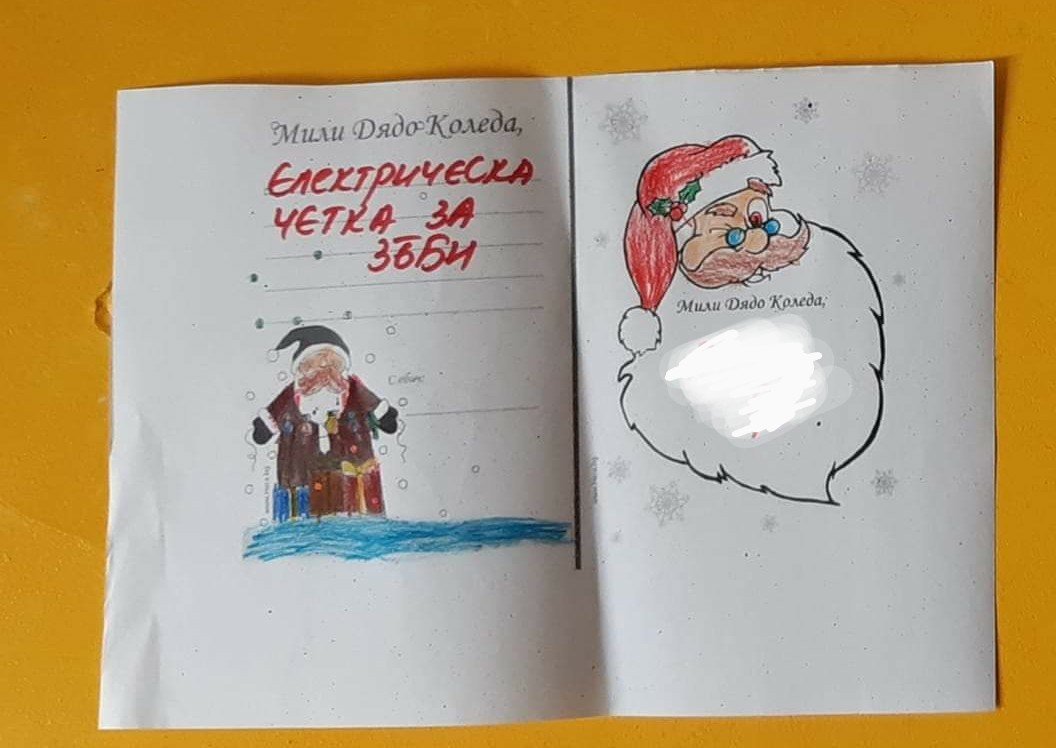 Мили Дядо Коледа,
ЕЛЕКТРИЧЕСКА
ЧЕТКА ЗА
ЗЪБИ
Мили Дядо Коледа,